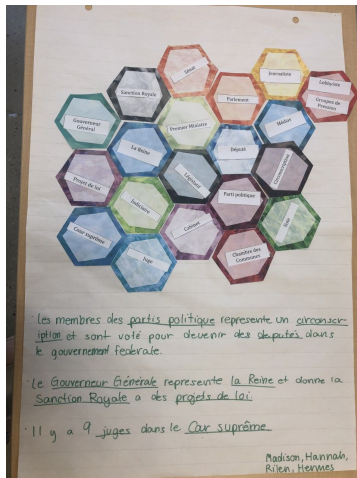 Sénat
Journaliste
Sanction Royale
Parlement
Lobbyiste
Groupes de Pression
Gouverneur Général
Premier Ministre
Médias
La Reine
Député
Projet de loi
Législatif
Circonscription
Judiciaire
Parti politique
Cour suprême
Cabinet
Juge
Chambre des Communes
Les membres des partis politique represente un circonscr-
iption et sont voté pour devenir des deputés dans
le gouvernement federale.
Le Gouverneur Générale represente la Reine et donne la
Sanction Royale a des projets de loi.
Il y a 9 juges dans le Car suprême
Madison, Hannah,
Rilen, Hermes